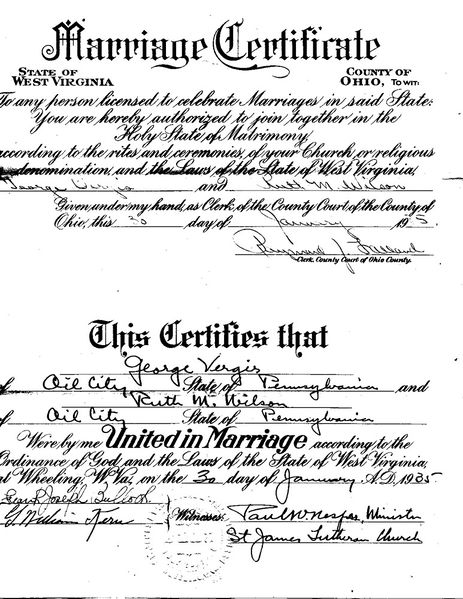 Marriage Certificate
STATE OF WEST VIRGINIA
COUNTY OF OHIO, TO WIT:
To any person licensed to celebrate Marriages in said State:
You are hereby authorized to join together in the
Holy State of Matrimony,
according to the rites and ceremonies, of your Church or religious
denomination, and the Laws of the State of West Virginia,
George Vergis and Ruth M. Wilson
Given under my hand, as Clerk, of the County Court of the County of
Ohio, this 30 day of January 1935.
Raymond J.
Clerk, County Court of Ohio County.
This Certifies that
George Vergis
of Oil City, State of Pennsylvania and
Ruth M. Wilson
of Oil City State of Pennsylvania
Were by me United in Marriage according to the
Ordinance of God and the Laws of the State of West Virginia,
at Wheeling, W. Va., on the 30 day of January A.D. 1935
Joseph
William Witnesses Paul W. Minister
St James Lutheran Church